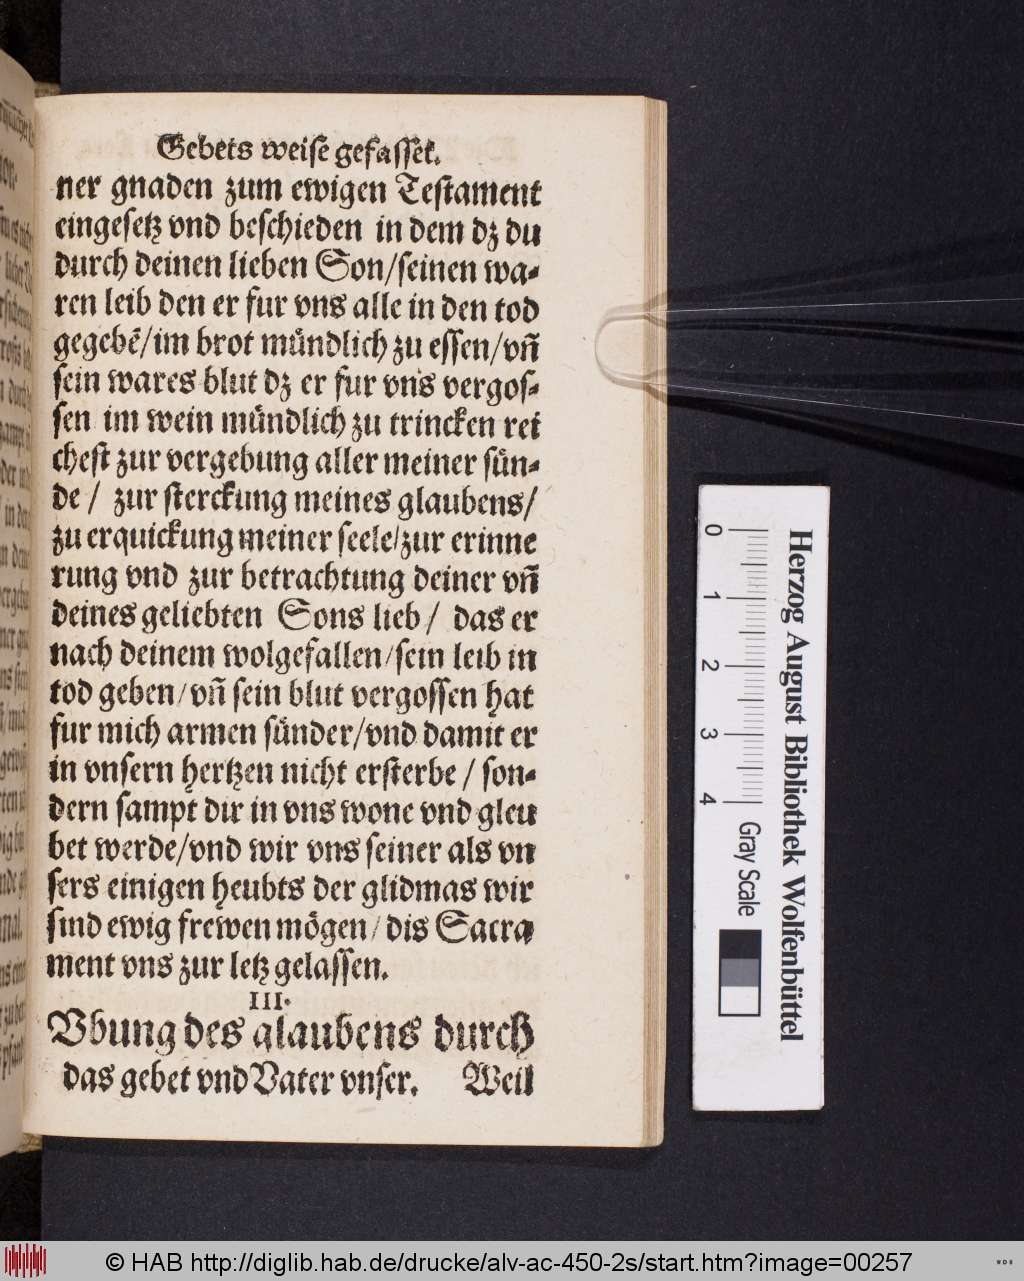 Gebets weise gefasset.
ner gnaden zum ewigen Testament
eingesetz vnd beschieden in dem dz du
durch deinen lieben Son/seinen wa-
ren leib den er fur vns alle in den tod
gegebē/im brot mündlich zu essen/vñ
sein wares blut dz er fur vns vergos-
sen im wein mündlich zu trincken rei
chest zur vergebung aller meiner sün-
de / zur sterckung meines glaubens/
zu erquickung meiner seele/zur erinne
rung vnd zur betrachtung deiner vñ
deines geliebten Sons lieb / das er
nach deinem wolgefallen/sein leib in
tod geben/vñ sein blut vergossen hat
fur mich armen sünder/vnd damit er
in vnsern hertzen nicht ersterbe / son-
dern sampt dir in vns wone vnd gleu
bet werde/vnd wir vns seiner als vn
sers einigen heubts der glidmas wir
sind ewig frewen mögen/dis Sacra
ment vns zur letz gelassen.
III.
Vbung des glaubens durch
das gebet vnd Vater vnser. Weil
0 1 2 3 4
Gray Scale
Herzog August Bibliothek Wolfenbüttel
© HAB http://diglib.hab.de/drucke/alv-ac-450-2s/start.htm?image=00257